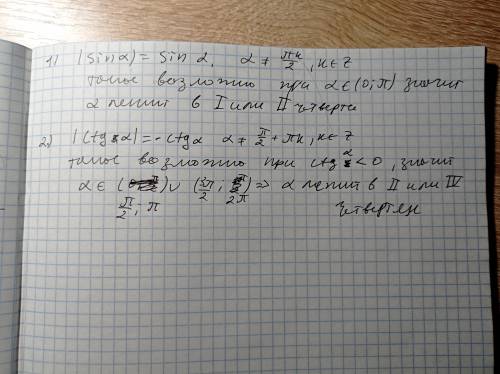 1) |sin α| = sin α, α ≠ πk/2, k ∈ Z
такое возможно при α ∈ (0; π) значит
α лежит в I или II четверти
2) |ctg α| = -ctg α α ≠ π/2 + πk, k ∈ Z
такое возможно при ctg α < 0, значит
α ∈ (π/2; π) ∪ (3π/2; 2π) ⇒ α лежит в II или IV
четвертях